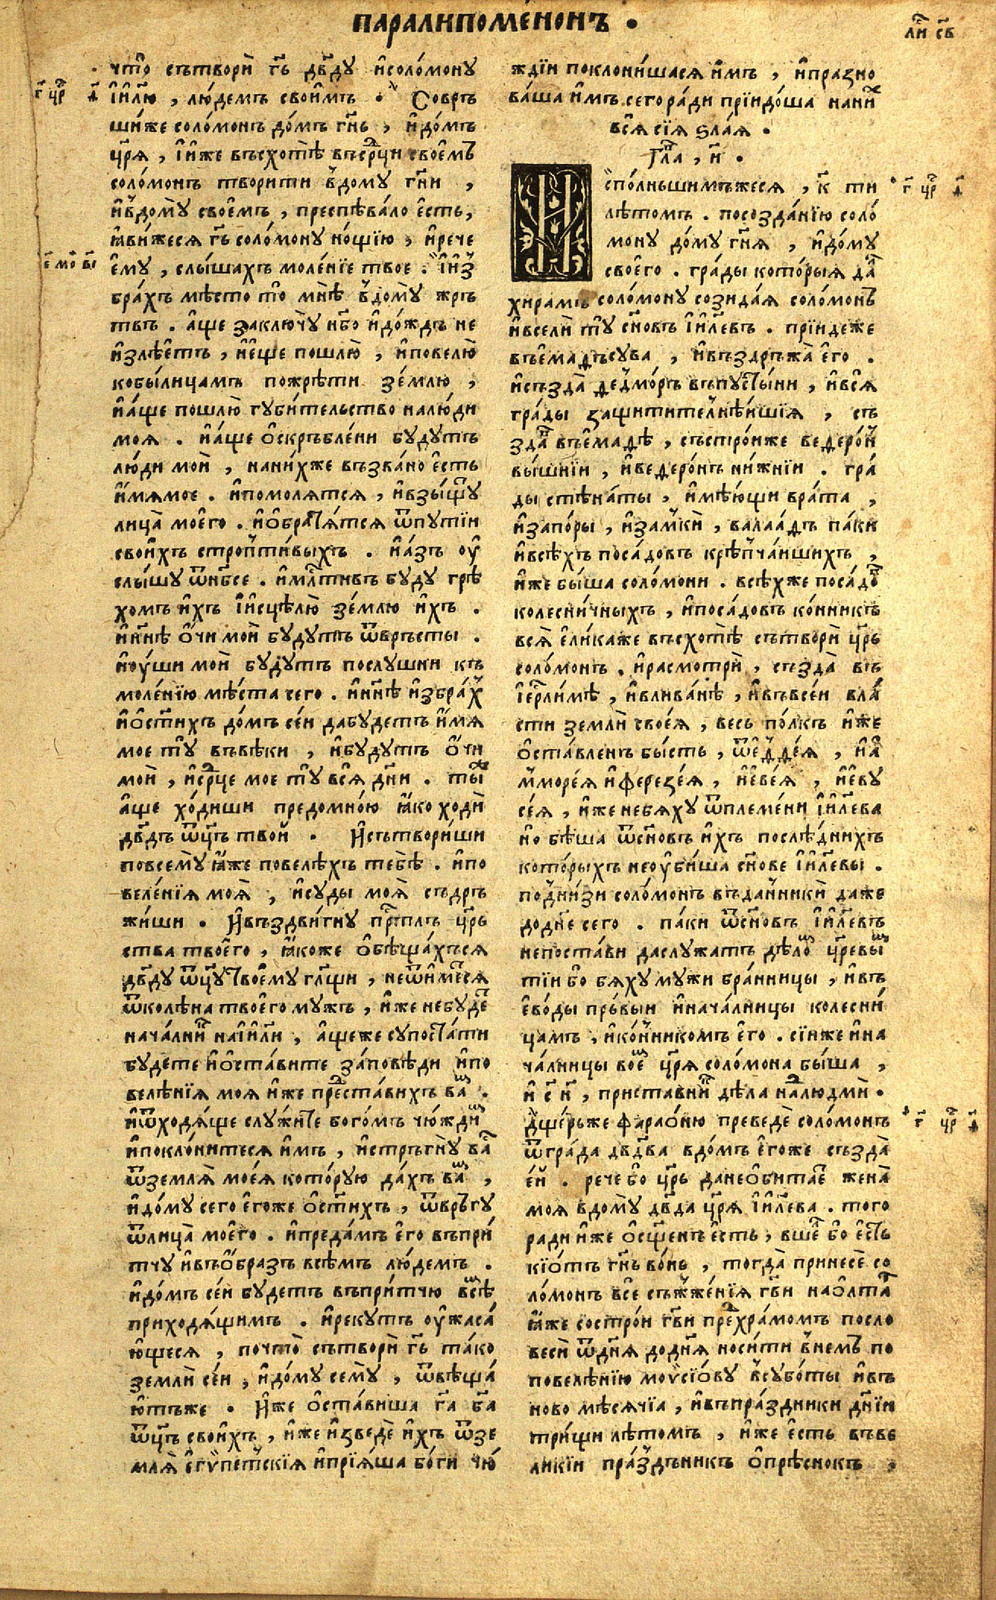 паралипоме́нонъ .
ли́ св
что̀ сътворѝ гь дв҃ду исоло́мону
і҆и҃лю , лю́демъ свои҆мъ . Собръ
ши́же соло́монъ до́мъ гн҃ь , и҆до́мъ
цр҃я , і҆и́же въсхотѣ̀ въср҃ци своемъ
соло́монъ твори́ти въдому гн҃и ,
и҆вдо̀му свое҆мъ , преспѣва́ло е҆сть ,
ꙗ҆ви́жеся гь соло́мону но́щїю , и҆рече
е҆му , слы́шахъ моле́нїе твое . и҆и҆з
бра́хъ мѣ́сто то̀ мнѣ̀ вдо̀му жръ
твъ . а҆ще заключу̀ нб҃о и҆до́ждь не
и҆злѣ́етъ , и҆е҆ще пошлю̀ , и҆повелю̀
кобы́лицамъ пожрѣ́ти зе́млю ,
и҆а҆ще пошлю̀ губи́тельство налю́ди
моя . и҆а҆ще о҆скръбле́ни бу́дутъ
лю́ди моѝ , нани́хже възва́но е҆сть
и҆мямое . и҆помоля́тся , и҆взы́щу
лица̀ моего̀ . и҆о҆братя́тся ѿпутїи
свои́хъ стропти́выхъ . и҆а́зъ оу҆
слы́шу ѿнб҃се . и҆мл҃тивъ буду грѣ
хомъ и҆хъ и҆исцѣлю̀ зе́млю и҆хъ .
и҆нн҃ѣ о҆чи моѝ бу́дутъ ѿвръ́сты .
и҆оу҆ши моѝ бу́дутъ послушни къ
моле́нїю мѣ́ста сего . и҆нн҃ѣ и҆збра́х
и҆о҆ст҃и́хъ до́мъ се́и дабу́детъ и҆мя
мое ту̀ въвѣ́ки , и҆бу́дутъ о҆чи
моѝ , и҆ср҃це мое ту̀ вся̀ дн҃и . ты̀
а҆ще хо́диши предомно́ю ꙗ҆ко ходѝ
дв҃дъ ѿц҃ъ твоѝ . И҆сътвориши
повсему̀ ꙗ҆же повелѣ́хъ тебѣ̀ . и҆по
веле́нїя моя̀ , и҆су́ды моя̀ съдръ
жи́ши . И҆въздви́гну пр҃тлъ цр҃ь
ства твоего̀ , ꙗ҆коже о҆бѣща́хъся
дв҃ду ѿц҃у твоему гл҃щи , неѿи́мется
ѿколѣна твоего мужъ , и҆же небуде
нача́лни наі҆и҃ли , а҆щеже супоста́ти
бу́дете и҆о҆ста́вите за́повѣди и҆по
велѣ́нїя моя и҆же преⷣста́вихъ ва .
и҆ѿходя́ще служи́те бого́мъ чю́ждиⷨ
и҆поклони́теся и҆мъ , и҆стръ́гну ва
ѿземля̀ моея̀ кото́рую да́хъ ва ,
и҆до́му сего е҆гоже о҆ст҃и́хъ , ѿвръ́гу
ѿлица̀ моего . и҆преда́мъ е҆го въпри́
тчу и҆въо҆бразъ всѣ́мъ лю́демъ .
и҆до́мъ се́и бу́детъ въпри́тчю всѣ
приходя́щимъ . и҆реку́тъ оу҆жаса́
ю҆щеся , почто̀ сътворѝ гь та́ко
землѝ се́и , и҆до́му сему̀ , ѿвѣща́
ю҆тъже . И҆же о҆ста́виша га ба
ѿц҃ъ свои́хъ , и҆же и҆зведѐ и҆хъ ѿзе
мля̀ е҆гѵпетскїя и҆прїя́ша бо́ги чю́
ждїи поклони́шася и҆мъ , и҆пра́зно
ва́ша и҆мъ . сегора́ди прїидо́ша нани
вся̀ сїя̀ ѕла́я .
Гла , и҃ .
И҆спо́лньшимъжеся , к҃ ти
лѣ́томъ . посозда́нїю соло́
мону до́му гн҃я , и҆до́му
своего . гра́ды кото́рыя да
хира́мъ соло́мону созида́я соло́монъ
и҆вселѝ ту̀ сн҃овъ і҆и҃левъ . прїи́деже
въема́дъсува , и҆въздръжа̀ е҆го .
и҆създа̀ дедмо́ръ въпусты́ни , и҆вся̀
гра́ды защити́телнѣишїя , съ
зда въема́дѣ , състро́иже ведеро́н
вы́шнїи , и҆ведеро́нъ ни́жнїи . гра́
ды стѣна́ты , и҆мѣ́ющи врата̀ ,
и҆запо́ры , и҆замкѝ , валаа́дъ паки
и҆всѣ́хъ поса́довъ крѣпча́ишихъ ,
и҆же бы́ша соло́мони . всѣ́хже поса́до
колесни́чныхъ , и҆поса́довъ ко́нникъ
вся̀ е҆ли́каже въсхотѣ̀ сътворѝ цр҃ь
соло́монъ . и҆расмотрѝ , създа̀ въ
і҆ерл҃имѣ , и҆влива́нѣ , и҆въвсе́и вла́
сти землѝ своея̀ , весь по́лкъ и҆же
о҆ста́вленъ бы́сть , ѿе҆дде́я , и҆а
мморе́я и҆ферезе́я , и҆е҆ве́я , и҆е҆ву
се́я , и҆же небя́ху ѿпле́мени і҆и҃лева
но бѣ́ша ѿсн҃овъ и҆хъ послѣ́днихъ
кото́рыхъ неоу҆би́ша сн҃ове і҆и҃левы .
подни́зи соло́монъ въда́нникѝ даже
додне́ сего . паки ѿсн҃овъ і҆и҃левъ
непоста́ви даслу́жатъ дѣ́лоⷨ цр҃евыⷨ
тїи бо бя́ху му́жи бра́нницы , и҆въ
е҆во́ды пръ́выи и҆нача́лницы колесни́
цамъ , и҆ко́нникомъ е҆го . сїи́же и҆на
ча́лницы вое цр҃я соло́мона бы́ша ,
и҆ с҃ н҃ , приста́вни дѣ́ла налюдмѝ .
дще́рьже фарао́ню преведѐ соло́монъ
ѿгра́да дв҃два вдо́мъ е҆гоже създа̀
е҆и́ . рече́ бо цр҃ь данео҆бита́е жена̀
моя вдому̀ дв҃да цр҃я і҆и҃лева . того
ради и҆же о҆сще́нъ е҆сть , вше бо е҆сть
кїо́тъ гн҃ь во́нь , тогда̀ принесѐ со
ло́монъ все съжже́нїя гв҃и наолта
ꙗ҆же состро́и гв҃и преⷣхра́момъ посло
весѝ ѿдн҃я додн҃я носи́ти внемъ по
повелѣ́нїю моѵсїо́ву всубо́ты и҆въ
ново мѣ́сячїа , и҆въпра́здники дн҃їи
три́щи лѣ́томъ , и҆же е҆сть въве
ли́кїи пра́здъникъ о҆прѣ́снокъ ,
г҃ цр҃ д҃
е҃ мо в҃і
г҃ цр҃ д҃
г҃ цр҃ д҃